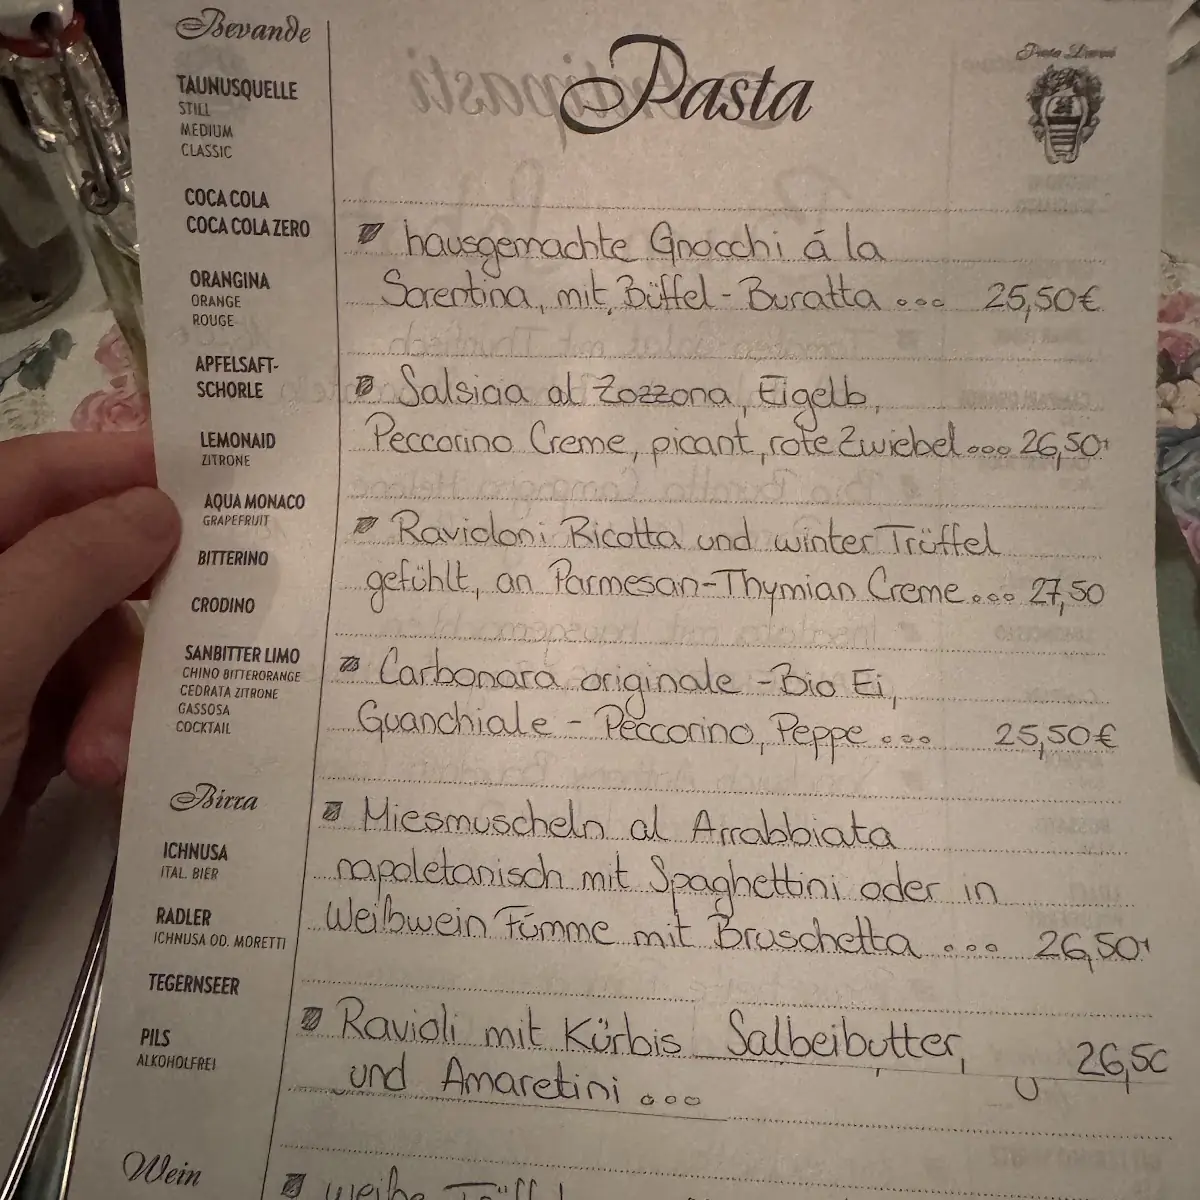 Bevande
TAUNUSQUELLE
STILL
MEDIUM
CLASSIC
COCA COLA
COCA COLA ZERO
ORANGINA
ORANGE
ROUGE
APFELSAFT-
SCHORLE
LEMONAID
ZITRONE
AQUA MONACO
GRAPEFRUIT
BITTERINO
CRODINO
SANBITTER LIMO
CHINO BITTERORANGE
CEDRATA ZITRONE
GASSOSA
COCKTAIL
Birra
ICHNUSA
ITAL. BIER
RADLER
ICHNUSA OD. MORETTI
TEGERNSEER
PILS
ALKOHOLFREI
Wein
Pasta
hausgemachte Gnocchi á la
Sorentina, mit Büffel-Buratta ... 25,50€
Salsicia al Zozzona, Eigelb,
Peccorino Creme, picant, rote Zwiebel ... 26,50
Ravioloni Ricotta und winter Trüffel
gefühlt, an Parmesan-Thymian Creme... 27,50
Carbonara originale - Bio Ei,
Guanchiale - Peccorino, Peppe ... 25,50€
Miesmuscheln al Arrabbiata
napoletanisch mit Spaghettini oder in
Weißwein Fümme mit Bruschetta ... 26,50
Ravioli mit Kürbis Salbeibutter, 26,50
und Amaretini ...
weiße